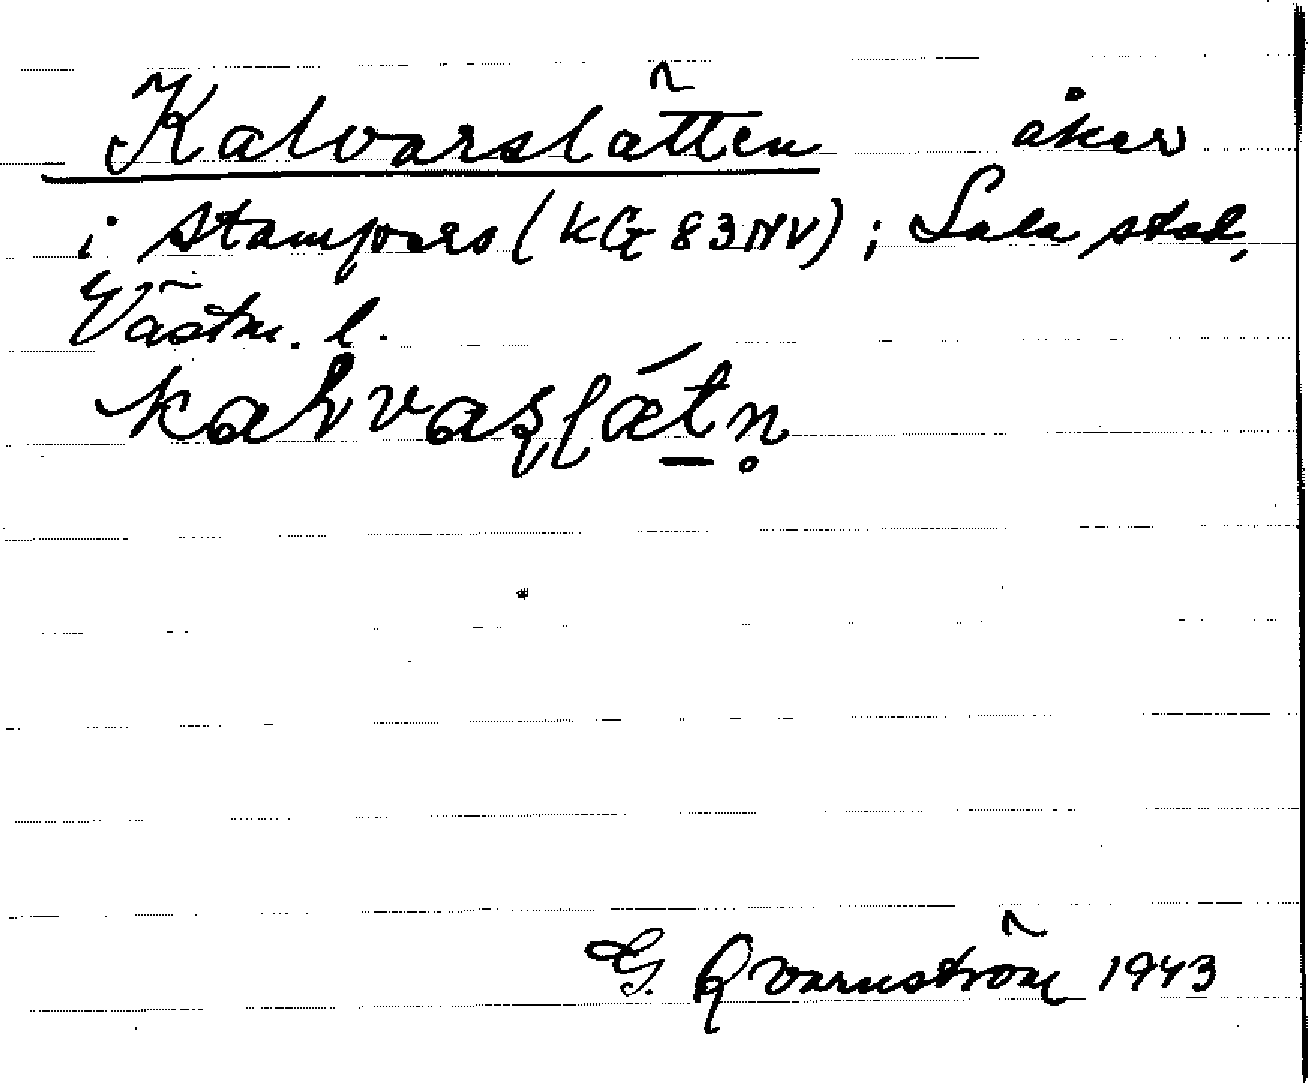 Kalvarslätten åker
i Stampers (KG 83 NV); Sala stad,
Västm. l.
kaɫvaʂɭǽt̠n̥
G. Qvarnström 1943